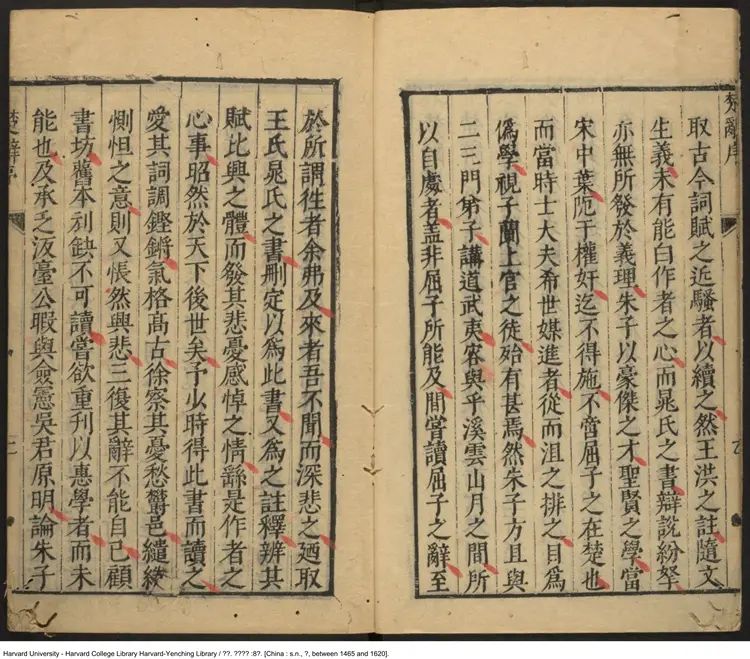 楚辭序
取古今詞賦之近騷者以續之然王洪之註隨文
生義未有能白作者之心而晁氏之書辯說紛拏
亦無所發於義理朱子以豪傑之才聖賢之學當
宋中葉阨于權奸迄不得施不啻屈子之在楚也
而當時士大夫希世媒進者從而沮之排之目為
偽學視子蘭上官之徒殆有甚焉然朱子方且與
二三門弟子講道武夷容與乎溪雲山月之間所
以自處者蓋非屈子所能及間嘗讀屈子之辭至
於所謂徃者余弗及來者吾不聞而深悲之廼取
王氏晁氏之書刪定以為此書又為之註釋辨其
賦比興之體而發其悲憂感悼之情繇是作者之
心事昭然於天下後世矣予少時得此書而讀之
愛其詞調鏗鏘氣格高古徐察其憂愁鬱邑繾綣
惻怛之意則又悵然興悲三復其辭不能自已顧
書坊舊本刓缺不可讀嘗欲重刊以惠學者而未
能也及承乏汳臺公暇與僉憲吳君原明論朱子
楚辭序
二
Harvard University - Harvard College Library Harvard-Yenching Library / ??. ???? :8?. [China : s.n., ?, between 1465 and 1620].